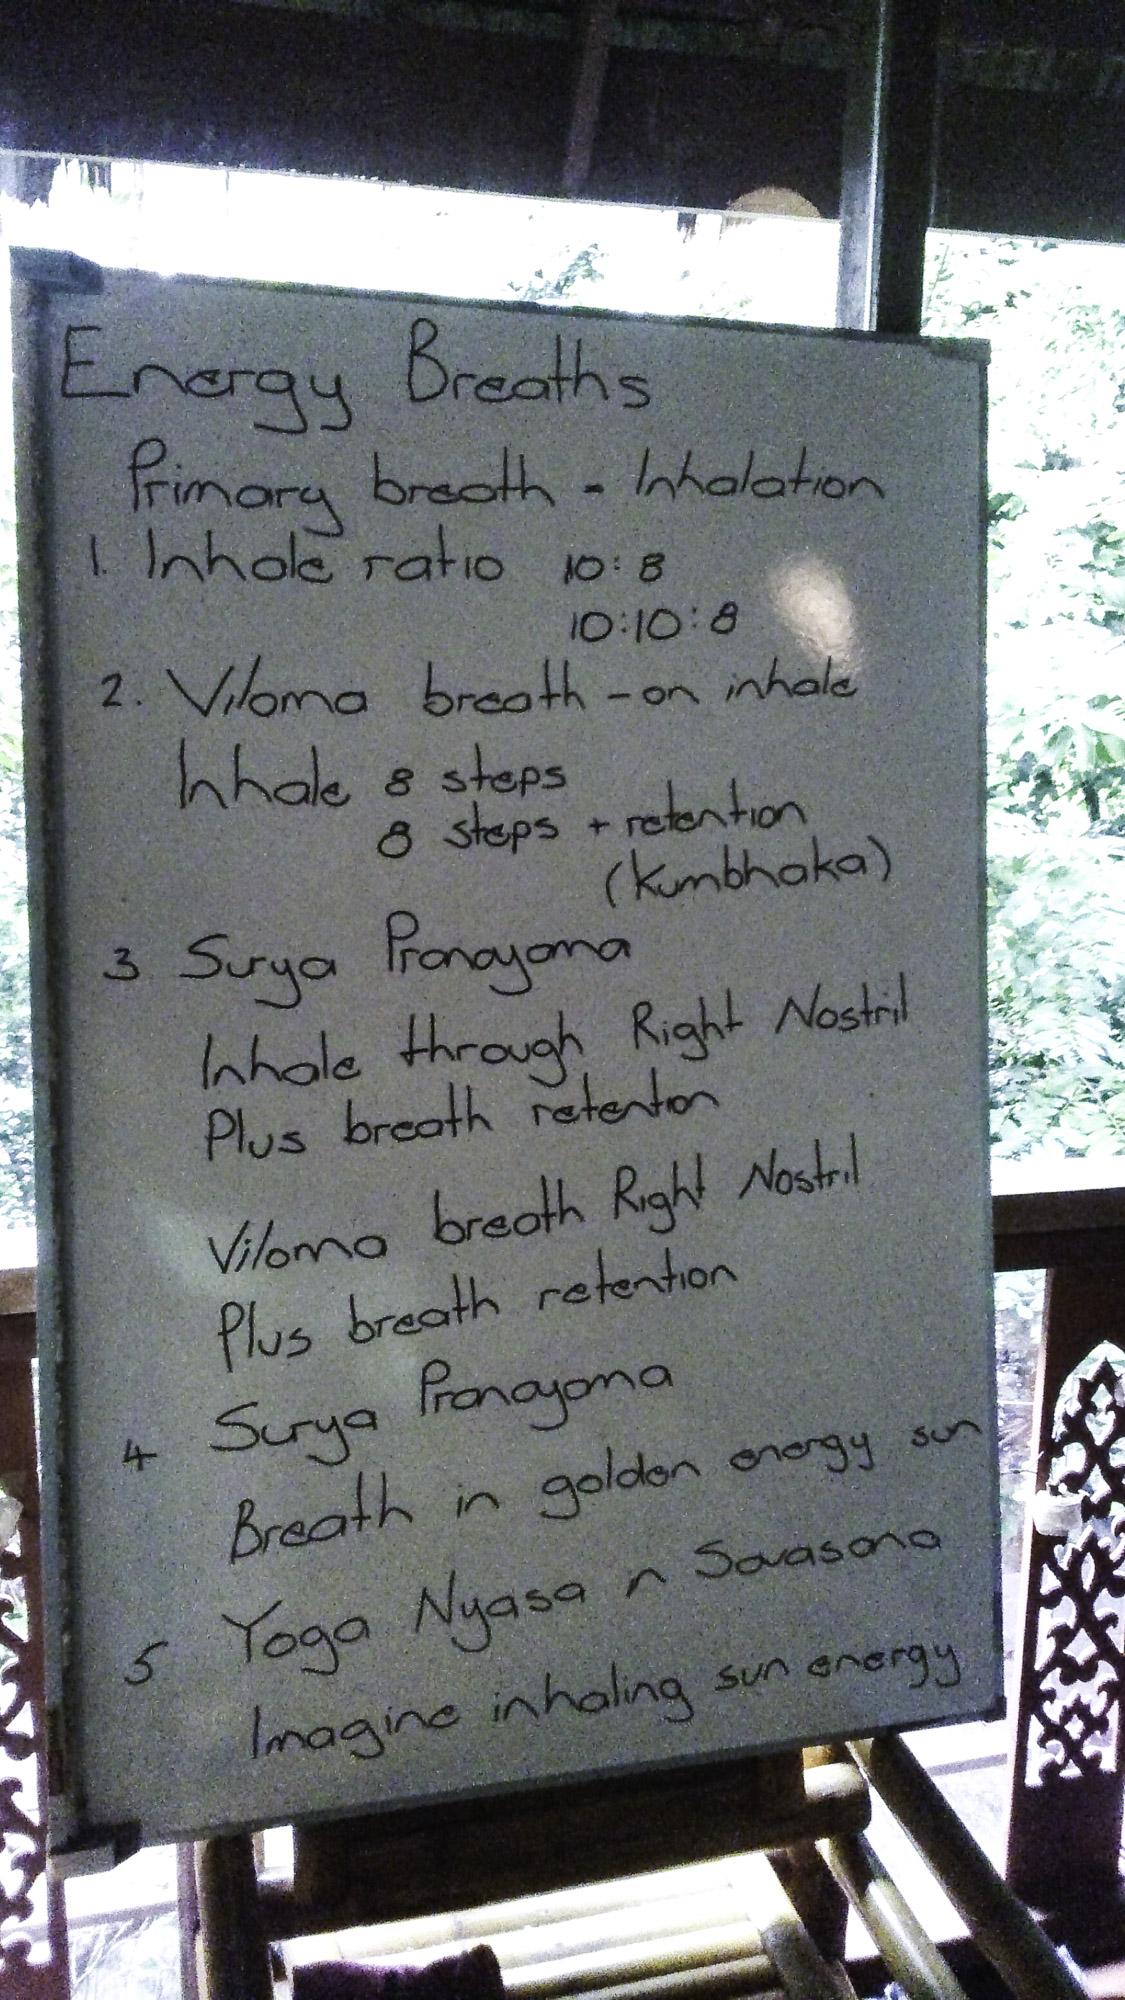 Energy Breaths
Primary breath - Inhalation
1. Inhale ratio 10:8
10:10:8
2. Viloma breath - on inhale
Inhale 8 steps
8 steps + retention
(Kumbhaka)
3 Surya Pranayama
Inhale through Right Nostril
Plus breath retention
Viloma breath Right Nostril
Plus breath retention
4 Surya Pranayama
Breath in golden energy sun
5 Yoga Nyasa n Savasana
Imagine inhaling sun energy